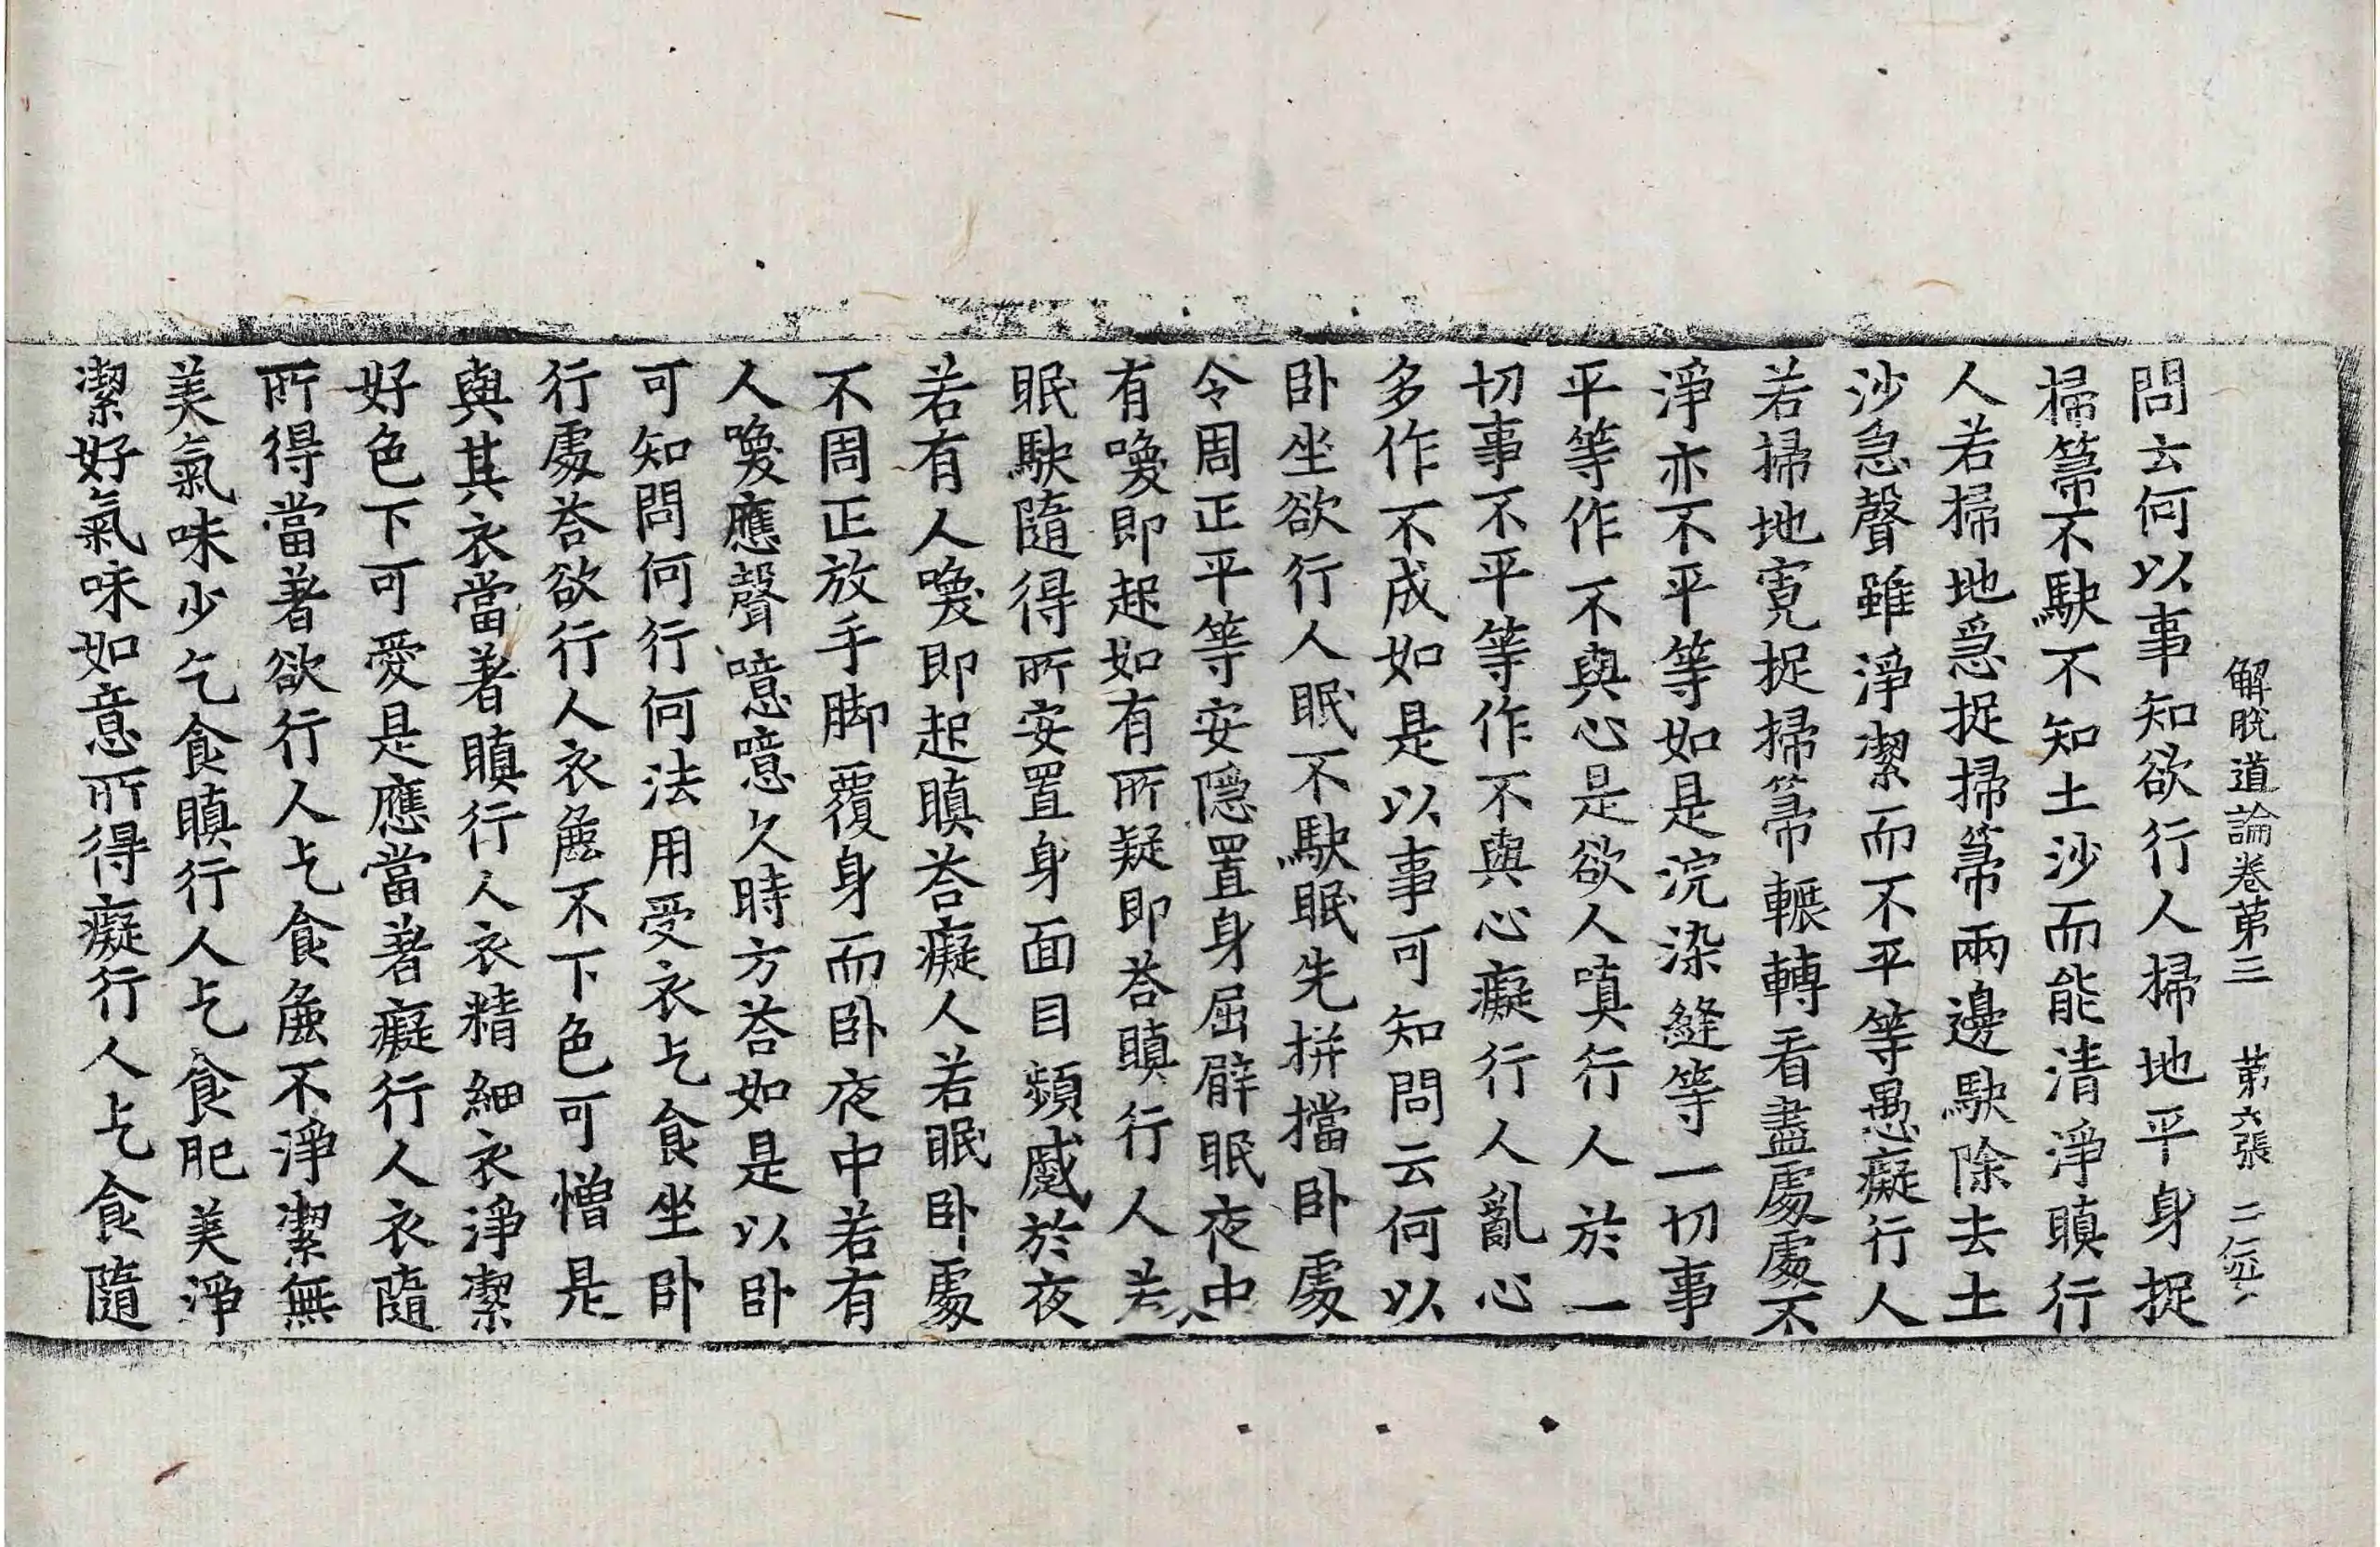 解脫道論卷苐三　苐六張　二
問云何以事知欲行人掃地平身捉
掃箒不駃不知土沙而能清淨瞋行
人若掃地急捉掃箒兩邊駃除去土
沙急聲雖淨潔而不平等愚癡行人
若掃地寬捉掃箒輾轉看盡處處不
淨亦不平等如是浣染縫等一切事
平等作不與心是欲人嗔行人於一
切事不平等作不與心癡行人亂心
多作不成如是以事可知問云何以
卧坐欲行人眠不駃眠先拼擋卧處
令周正平等安隱置身屈臂眠夜中
有喚即起如有所疑即荅瞋行人若
眠駃隨得所安置身面目頻慼於夜
若有人喚即起瞋荅癡人若眠卧處
不周正放手脚覆身而卧夜中若有
人喚應聲噫噫久時方荅如是以卧
可知問何行何法用受衣乞食坐卧
行處荅欲行人衣麁不下色可憎是
與其衣當著瞋行人衣精細衣淨潔
好色下可愛是應當著癡行人衣隨
所得當著欲行人乞食麁不淨潔無
美氣味少乞食瞋行人乞食肥美淨
潔好氣味如意所得癡行人乞食隨